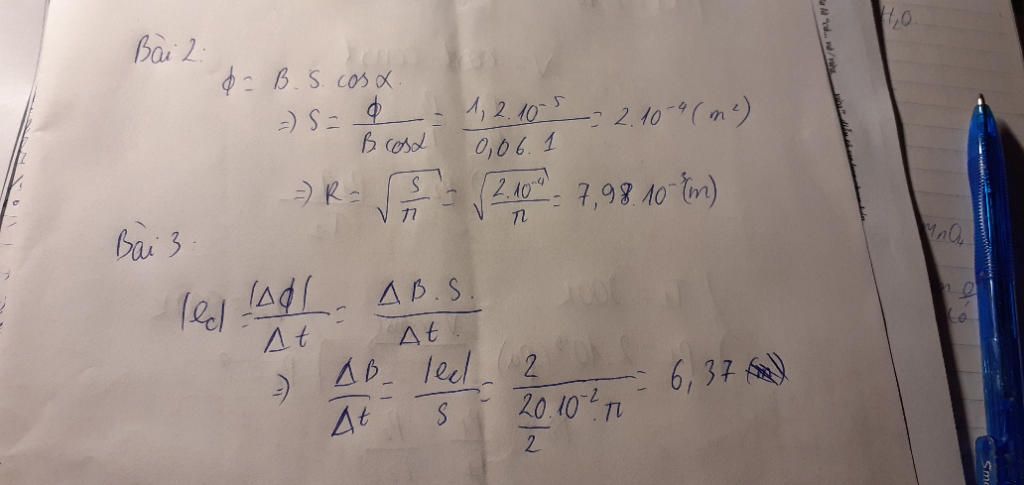 Bài 2:
ϕ = B . S. cosα.
=) S = ϕ / B cosα = 1,2.10⁻⁵ / 0,06.1 = 2.10⁻⁴ (m²)
=) R = √(S/π) = √(2.10⁻⁴/π) = 7,98.10⁻³ (m)
Bài 3.
|ec| = |Δϕ| / Δt = ΔB.S. / Δt.
=) ΔB / Δt = |ec| / S = 2 / (20/2 .10⁻².π) = 6,37
H₂O
MnO₄